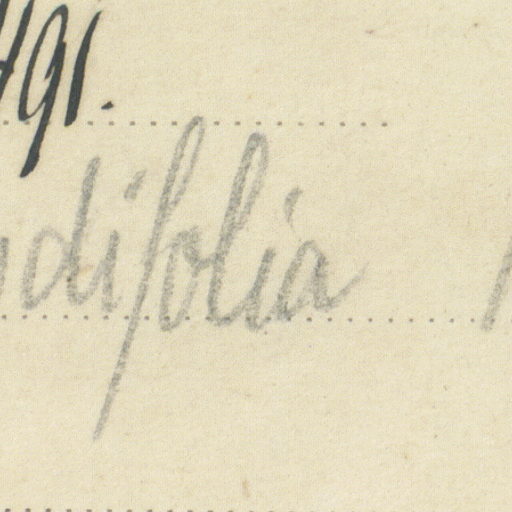 491.
ndifolia